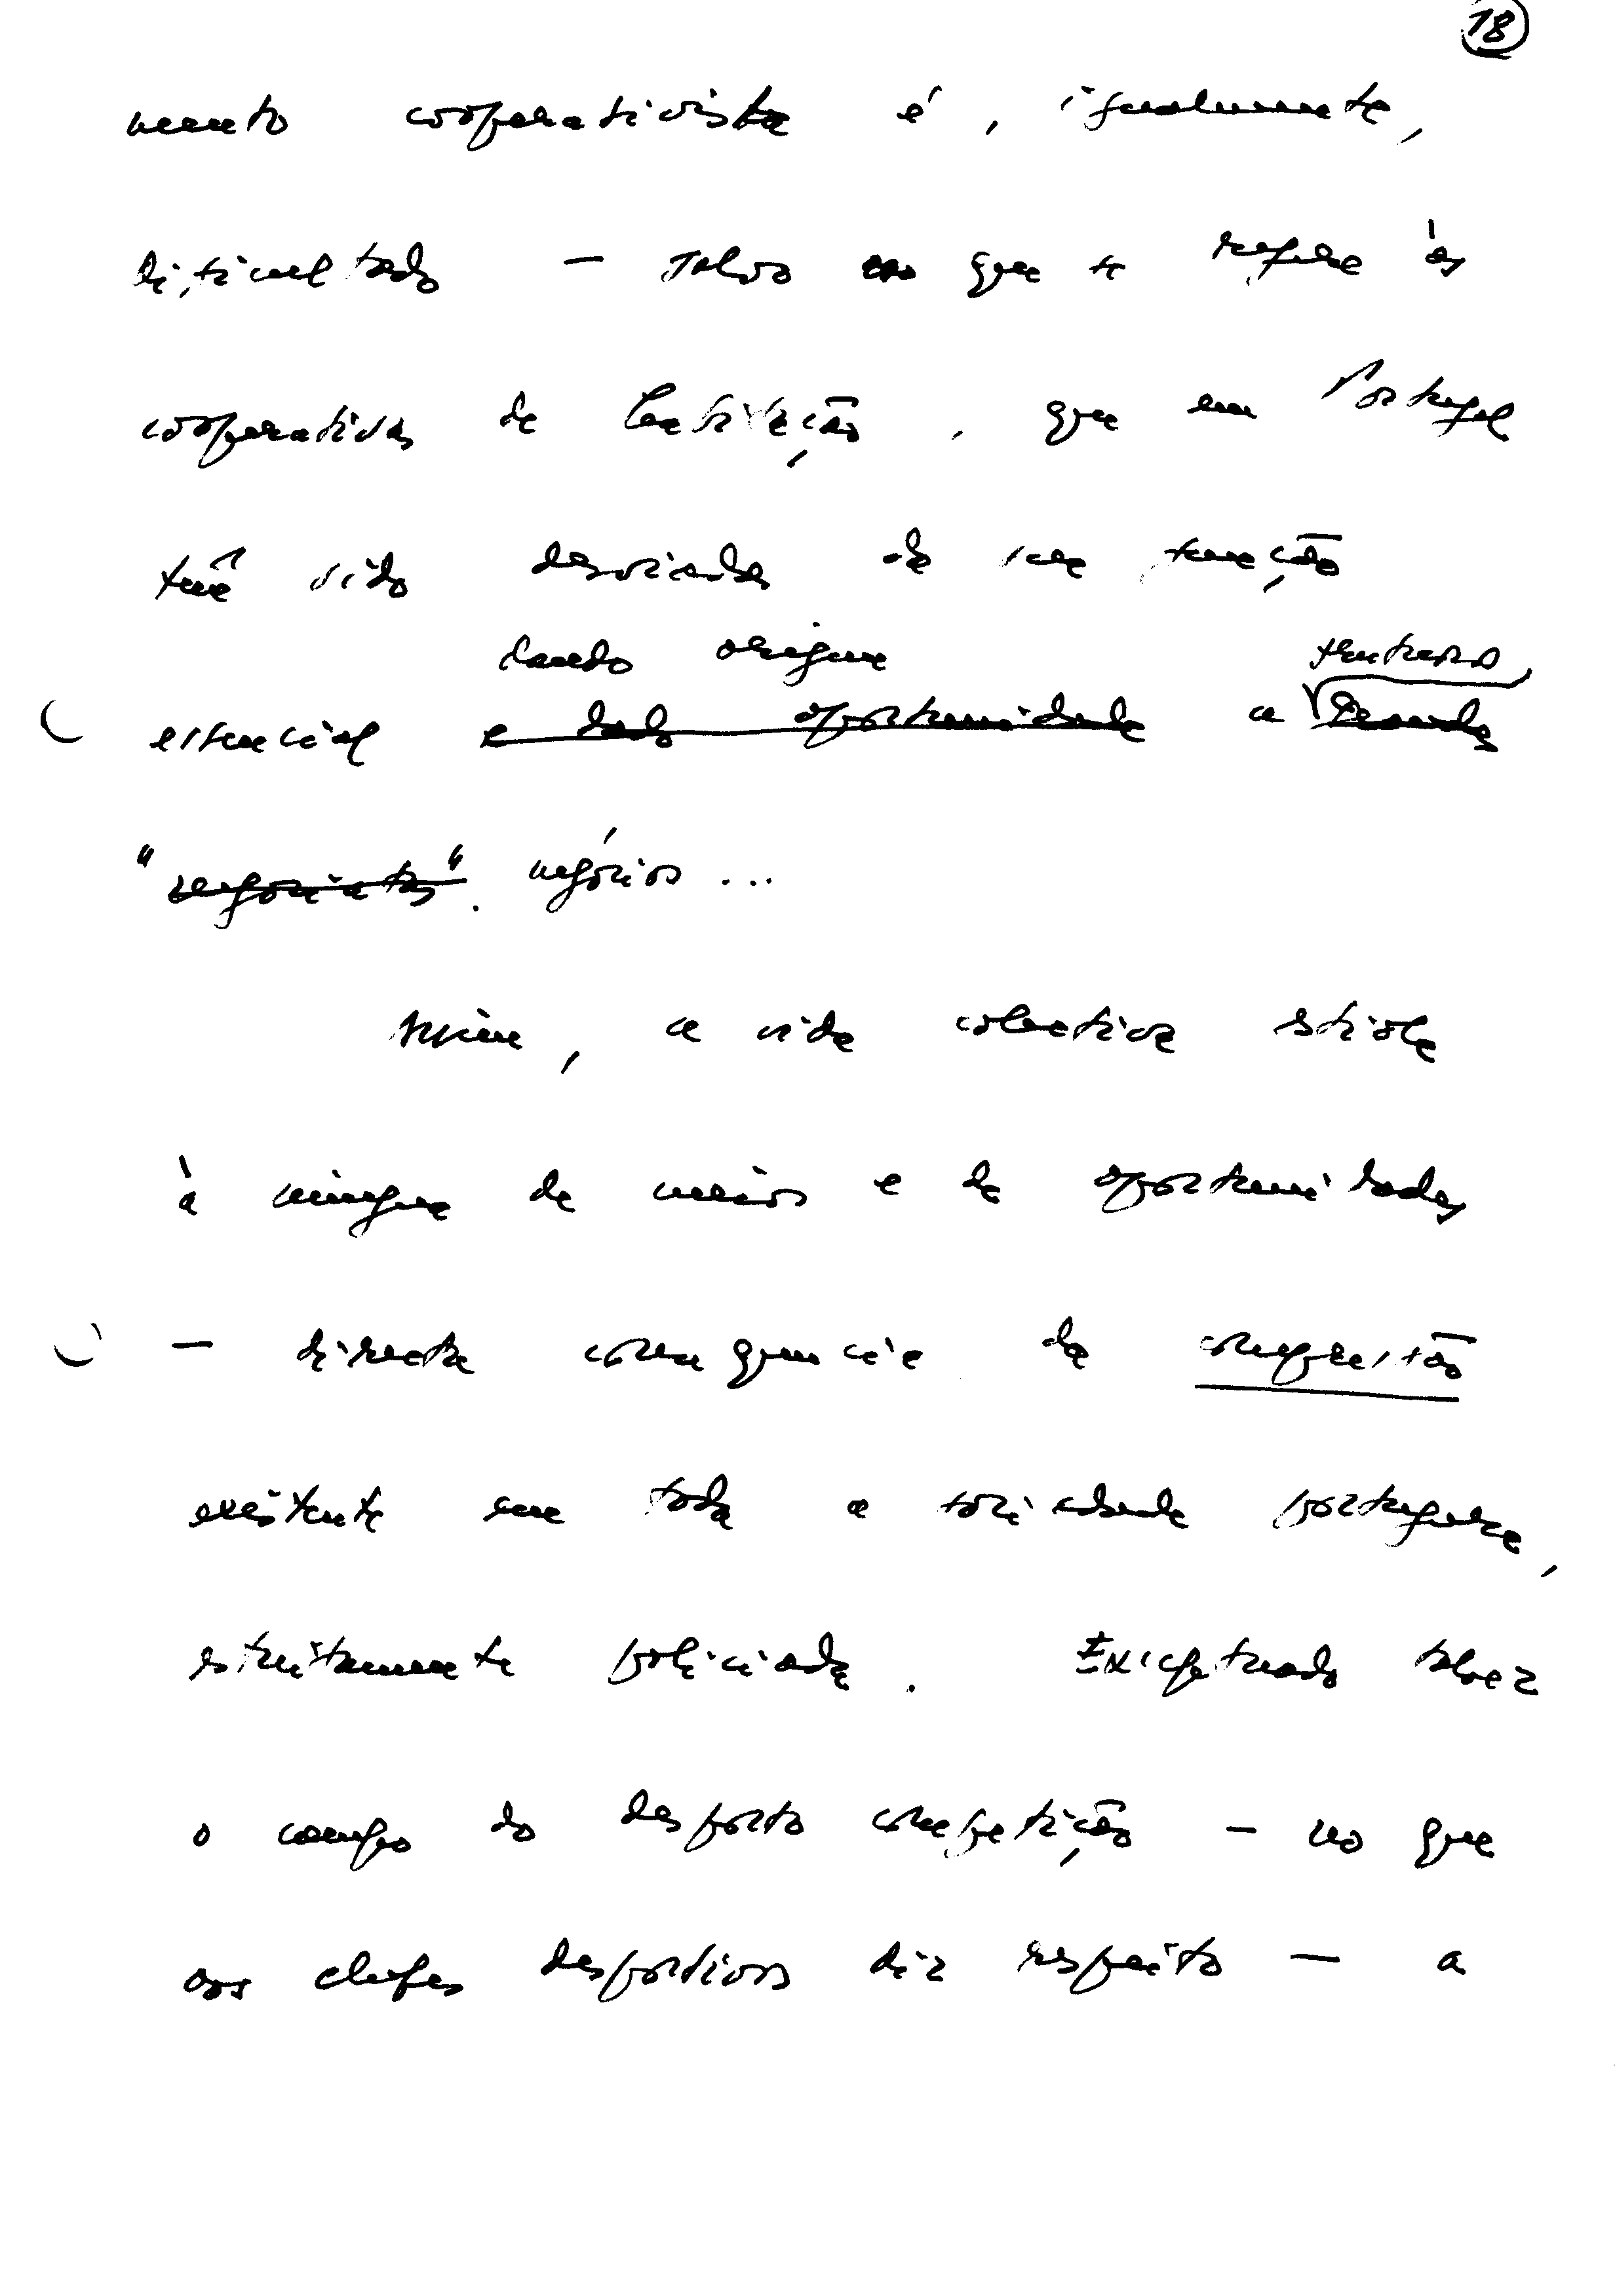 18
mento cooperativista é, igualmente,
dificultado — salvo no que se refere às
cooperativas de habitação, que em Portugal
têm sido desviadas da sua função
dando origem
essencial e dado oportunidade a
"negociatas". negócios ...
Assim, a vida colectiva estiola
à míngua de meios e de oportunidades
— directa consequência da compressão
existente em toda a sociedade portuguesa,
estreitamente policiada. Exceptuado talvez
o campo do desporto competição — no que
aos clubes desportivos diz respeito — a